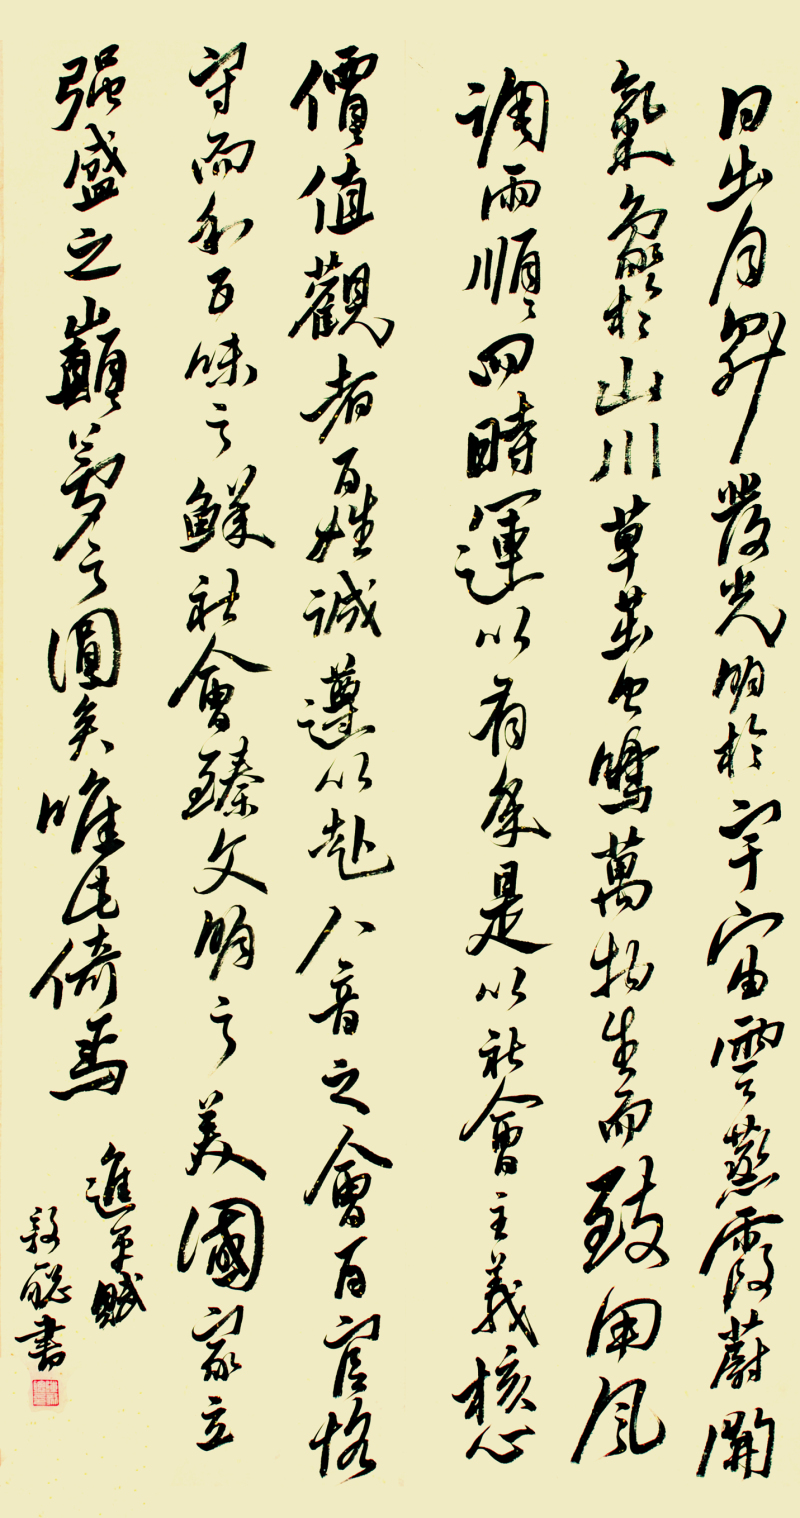 日出月升發光明於宇宙雲蒸霞蔚開
氣象於山川草茁虫鳴萬物生而致用風
調雨順四時運以有條是以社會主義核心
價值觀者百姓誠遵以赴八音之會百官恪
守而和五味之鮮社會臻文明之美國家立
强盛之巔夢之圓矣唯此倚焉
進平賦
聰書